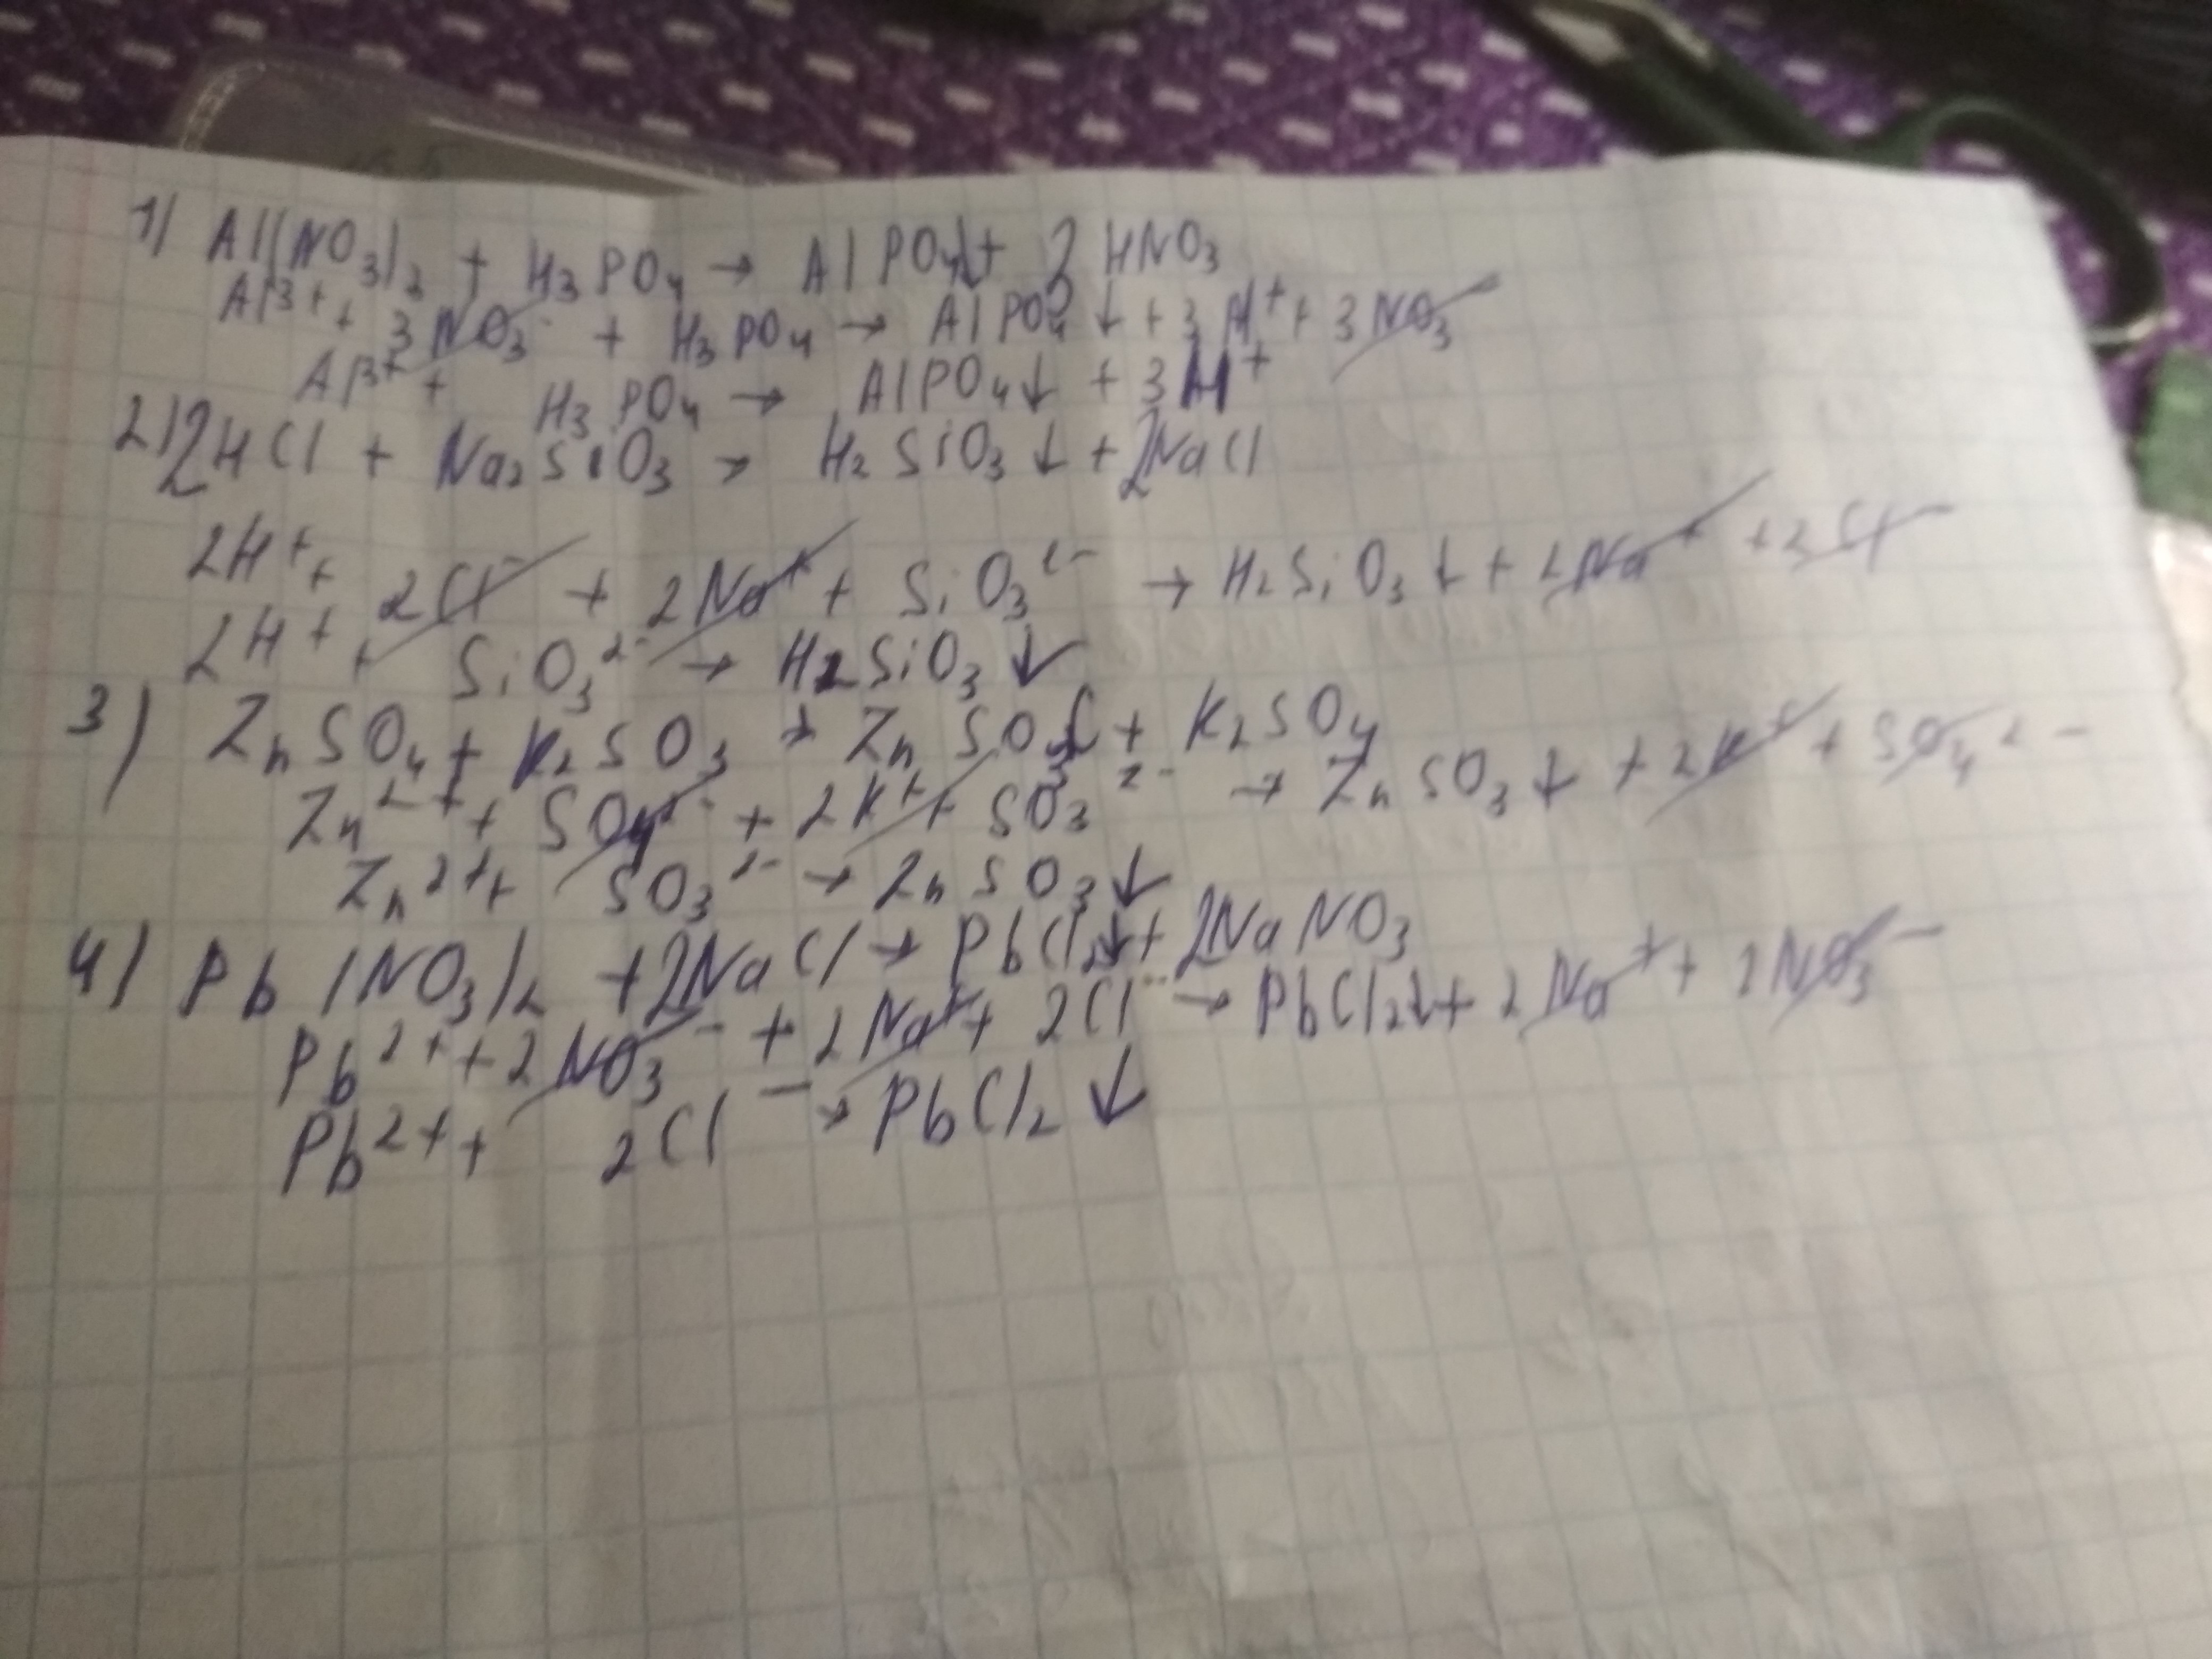 1) Al(NO3)3 + H3PO4 → AlPO4↓ + 3HNO3
Al3+ + 3NO3- + H3PO4 → AlPO4↓ + 3H+ + 3NO3-
Al3+ + H3PO4 → AlPO4↓ + 3H+
2) 2HCl + Na2SiO3 → H2SiO3↓ + 2NaCl
2H+ + 2Cl- + 2Na+ + SiO3 2- → H2SiO3↓ + 2Na+ + 2Cl-
2H+ + SiO3 2- → H2SiO3↓
3) ZnSO4 + K2SO3 → ZnSO3↓ + K2SO4
Zn2+ + SO4 2- + 2K+ + SO3 2- → ZnSO3↓ + 2K+ + SO4 2-
Zn2+ + SO3 2- → ZnSO3↓
4) Pb(NO3)2 + 2NaCl → PbCl2↓ + 2NaNO3
Pb2+ + 2NO3- + 2Na+ + 2Cl- → PbCl2↓ + 2Na+ + 2NO3-
Pb2+ + 2Cl- → PbCl2↓